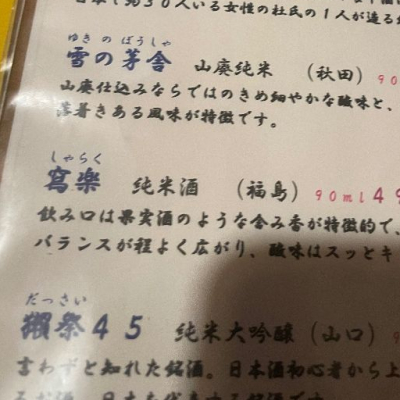 本で約30人いる女性の杜氏の1人が造る
ゆきのぼうしゃ
雪の茅舎 山廃純米 (秋田) 90
山廃仕込みならではのきめ細やかな酸味と、
落着きある風味が特徴です。
しゃらく
寫樂 純米酒 (福島) 90ml49
飲み口は果実酒のような含み香が特徴的で、
バランスが程よく広がり、酸味はスッとキ
だっさい
獺祭45 純米大吟醸(山口) 9
言わずと知れた銘酒。日本酒初心者から上